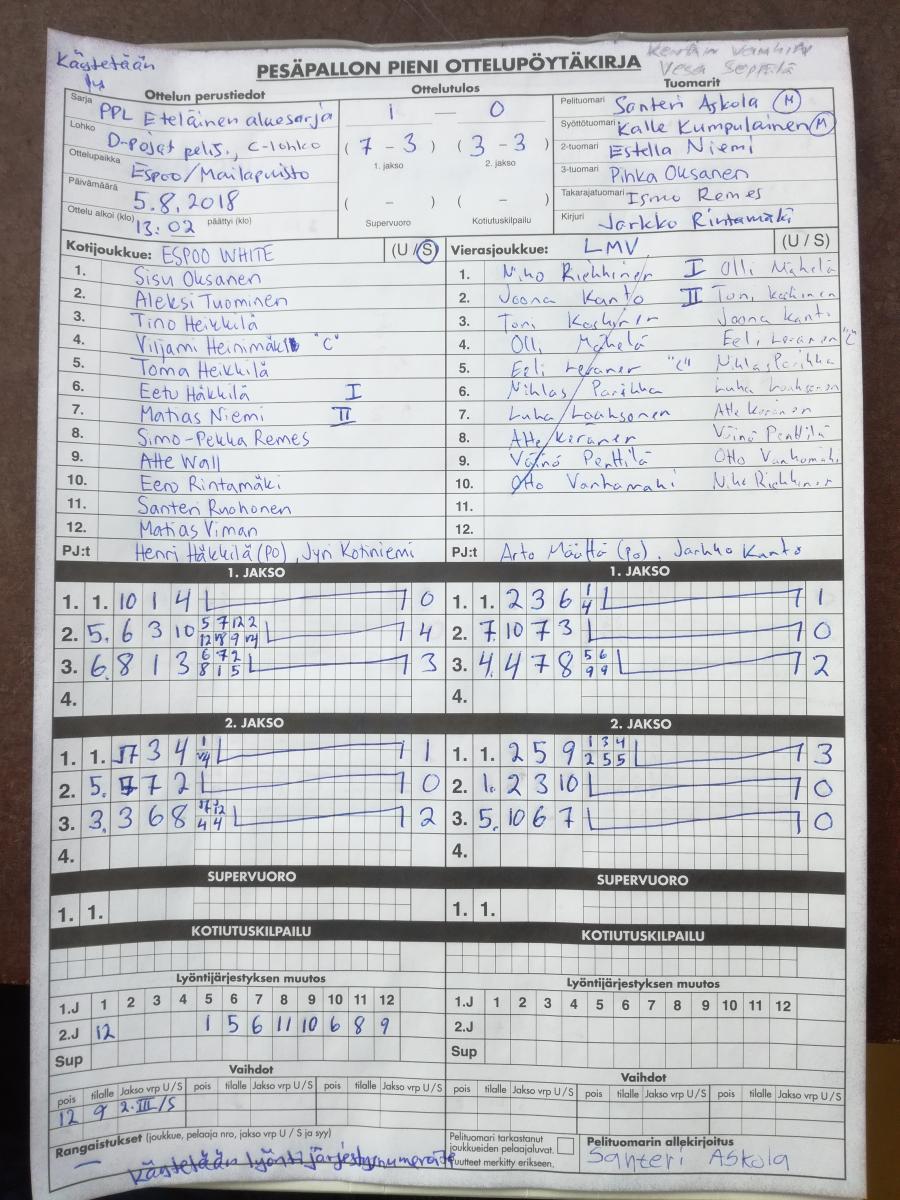 Käytetään
PESÄPALLON PIENI OTTELUPÖYTÄKIRJA
Vesa Seppälä
Ottelun perustiedot
Sarja PPL Eteläinen aluesarja
Lohko D-pojat pelis., C-lohko
Ottelupaikka Espoo/Mailapuisto
Päivämäärä 5.8.2018
Ottelu alkoi (klo) 13:02 päättyi (klo)
Ottelutulos
1 — 0
( 7 - 3 ) ( 3 - 3 )
1. jakso 2. jakso
( - ) ( - )
Supervuoro Kotiutuskilpailu
Tuomarit
Pelituomari Santeri Askola (M)
Syöttötuomari Kalle Kumpulainen (M)
2-tuomari Estella Niemi
3-tuomari Pihka Oksanen
Takarajatuomari Ismo Remes
Kirjuri Jarkko Rintamäki
Kotijoukkue: ESPOO WHITE (U / S)
1. Sisu Oksanen
2. Aleksi Tuominen
3. Tino Heikkilä
4. Viljami Heinimäki "C"
5. Toma Heikkilä
6. Eetu Häkkilä I
7. Matias Niemi II
8. Simo-Pekka Remes
9. Atte Wall
10. Eero Rintamäki
11. Santeri Ruohonen
12. Matias Viman
PJ:t Henri Häkkilä (PO), Jyri Kotiniemi
Vierasjoukkue: LMV (U / S)
1. Niho Riekkinen I Olli Mäkelä
2. Joona Kanto II Toni
3. Toni Joona Kanto
4. Olli Mäkelä Eeli "C"
5. Eeli "C" Niklas Parikka
6. Niklas Parikka Luka
7. Luka Atte Keränen
8. Atte Keränen Väinö Penttilä
9. Väinö Penttilä Otto Vanhamäki
10. Otto Vanhamäki Riekkinen
11.
12.
PJ:t Arto Määttä (PO), Jarkko Kanto
1. JAKSO
1. 1. 10 1 4 0
2. 5. 6 3 10 5 7 12 2 4
3. 6. 8 1 3 6 7 2 8 1 5 3
4.
1. JAKSO
1. 1. 2 3 6 1 4 1
2. 7. 10 7 3 0
3. 4. 4 7 8 5 6 9 9 2
4.
2. JAKSO
1. 1. 3 4 1
2. 5. 7 2 0
3. 3. 3 6 8 4 4 2
4.
2. JAKSO
1. 1. 2 5 9 1 3 4 2 5 5 3
2. 1. 2 3 10 0
3. 5. 10 6 7 0
4.
SUPERVUORO
1. 1.
SUPERVUORO
1. 1.
KOTIUTUSKILPAILU
KOTIUTUSKILPAILU
Lyöntijärjestyksen muutos
1.J 1 2 3 4 5 6 7 8 9 10 11 12
2.J 12 1 5 6 11 10 6 8 9
Sup
Lyöntijärjestyksen muutos
1.J 1 2 3 4 5 6 7 8 9 10 11 12
2.J
Sup
Vaihdot
pois tilalle Jakso vrp U/S pois tilalle Jakso vrp U/S pois tilalle Jakso vrp U/S
12 9 2.III/S
Vaihdot
pois tilalle Jakso vrp U/S pois tilalle Jakso vrp U/S pois tilalle Jakso vrp U/S
Rangaistukset (joukkue, pelaaja nro, jakso vrp U / S ja syy)
—
Käytetään lyöntijärjestysnumeroita
Pelituomari tarkastanut
joukkueiden pelaajaluvat.
Puutteet merkitty erikseen.
Pelituomarin allekirjoitus
Santeri Askola